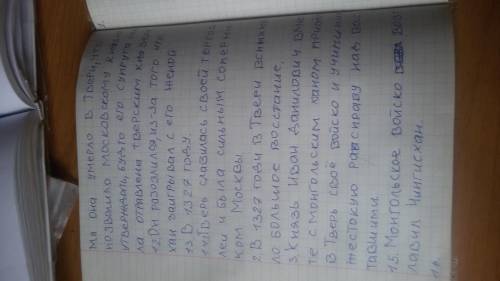 мя она умерло в Твери, что
позволило московскому князю
утверждать, будто его супруга бы
ла отравлена тверским князем
12. Он разозлился, из-за того что
хан заигрывал с его женой
13. В 1327 году.
14. Тверь славилась своей торгов
лей и была сильным соперни
ком Москвы
2. В 1327 году в Твери вспыхну
ло большое восстание.
3. Князь Иван Данилович вмес
те с монгольским ханом привёл
в Тверь своё войско и учинили
жестокую расправу над вос
тавшими.
15. Монгольское войско воз
главил Чингисхан.